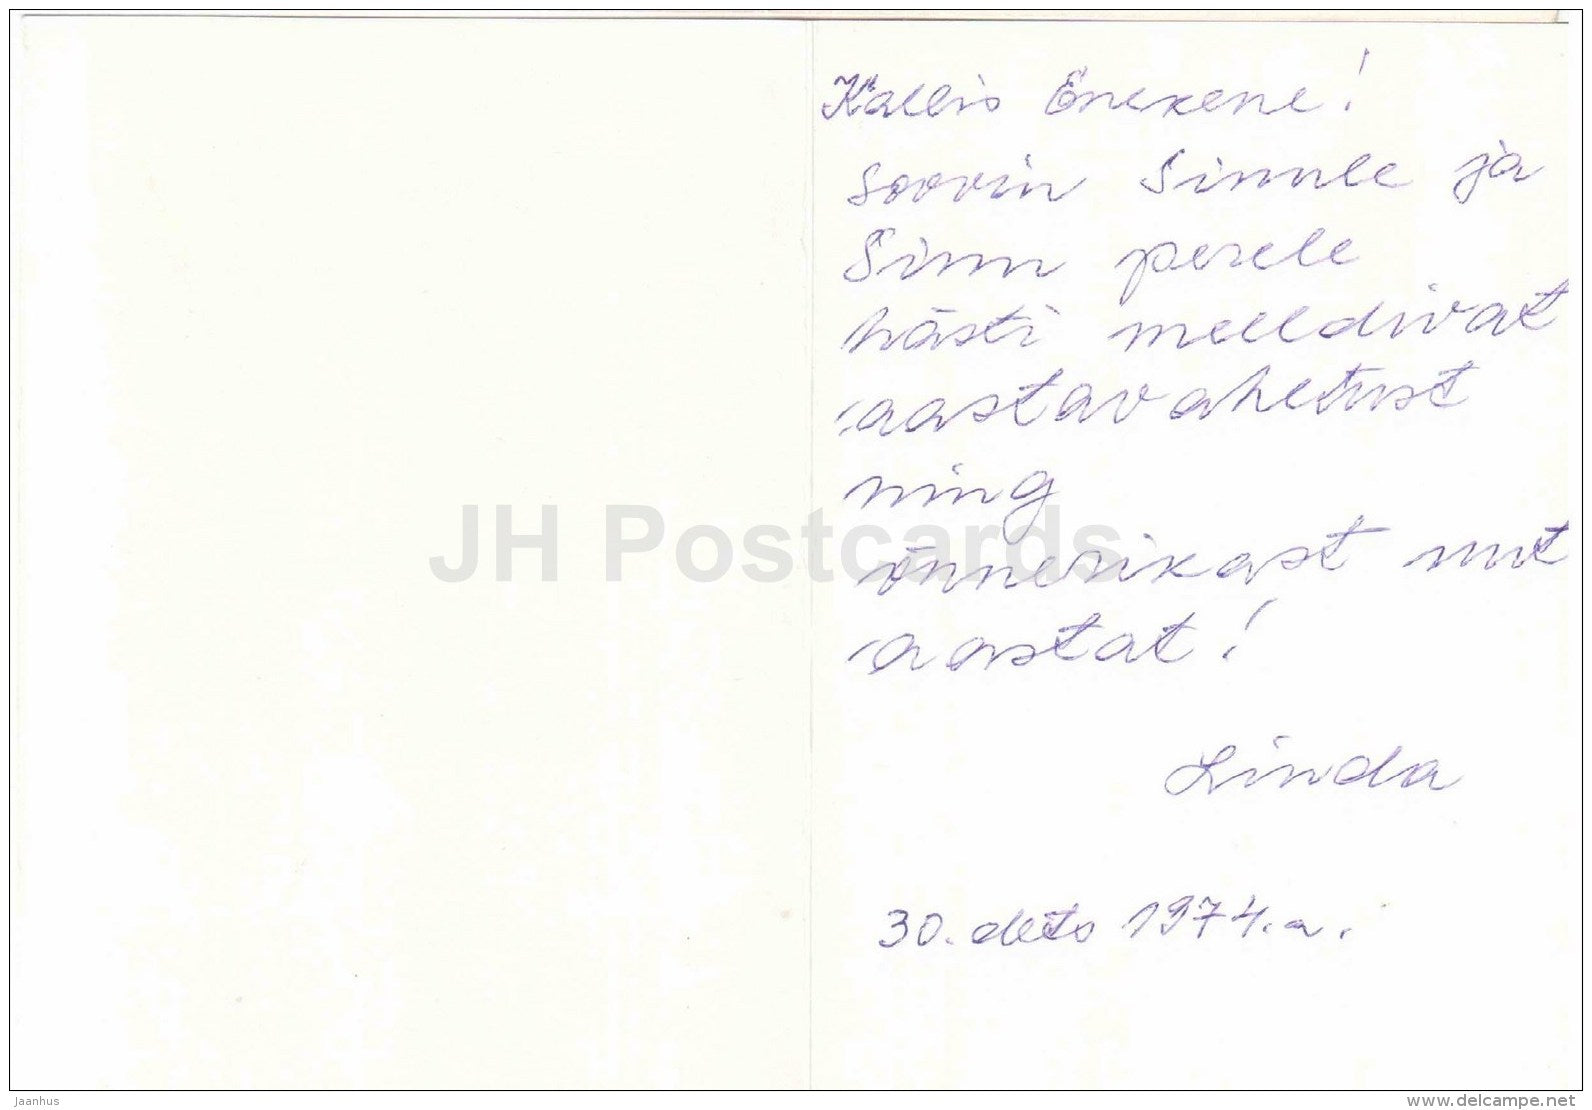 Kallis Enekene!
Soovin Sinule ja
Sinu perele
hästi meeldivat
aastavahetust
ning
õnnerikast uut
aastat!
Linda
30. dets 1974.a.
JH Postcards
Jaanhus
www.delcampe.net